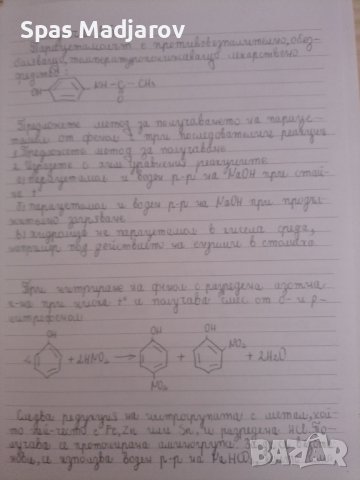 Spas Madjarov
Парацетамолът е противовъзпалително, обез-
боляващо, температуропонижаващо лекарствено
средство:
OH NH - C - CH3
O
Предложете метод за получаването на парацетамол
от фенол в три последователни реакции
1. Предложете метод за получаване
2. Изразете с хим. уравнения реакциите
а) парацетамол и воден р-р на NaOH при стай-
на t°
б) парацетамол и воден р-р на NaOH при продъл-
жително загряване
в) хидролиза на парацетамол в кисела среда,
например под действието на киселини в стомаха
При нитриране на фенол с разредена азотна
к-на при ниска t° се получава смес от о- и р-
нитрофенол
OH OH OH
+ 2HNO3 → + NO2 + 2H2O
NO2
Следва редукция на нитрогрупата с метал, кой-
то най-често е Fe, Zn или Sn, и разредена HCl. По-
лучава се протонирана аминогрупа
се използва воден р-р на
BAZAR